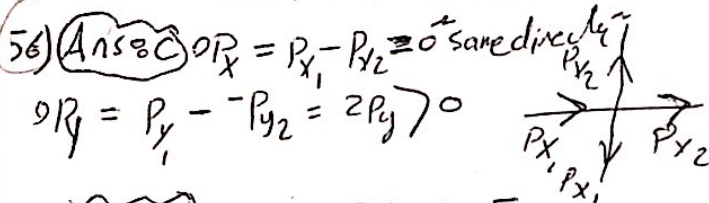 56) Ans: C ΔPx = Px1 - Px2 = 0 "same direct"
ΔPy = Py1 - -Py2 = 2Py > 0
Py2
Px1 Px2
Px1